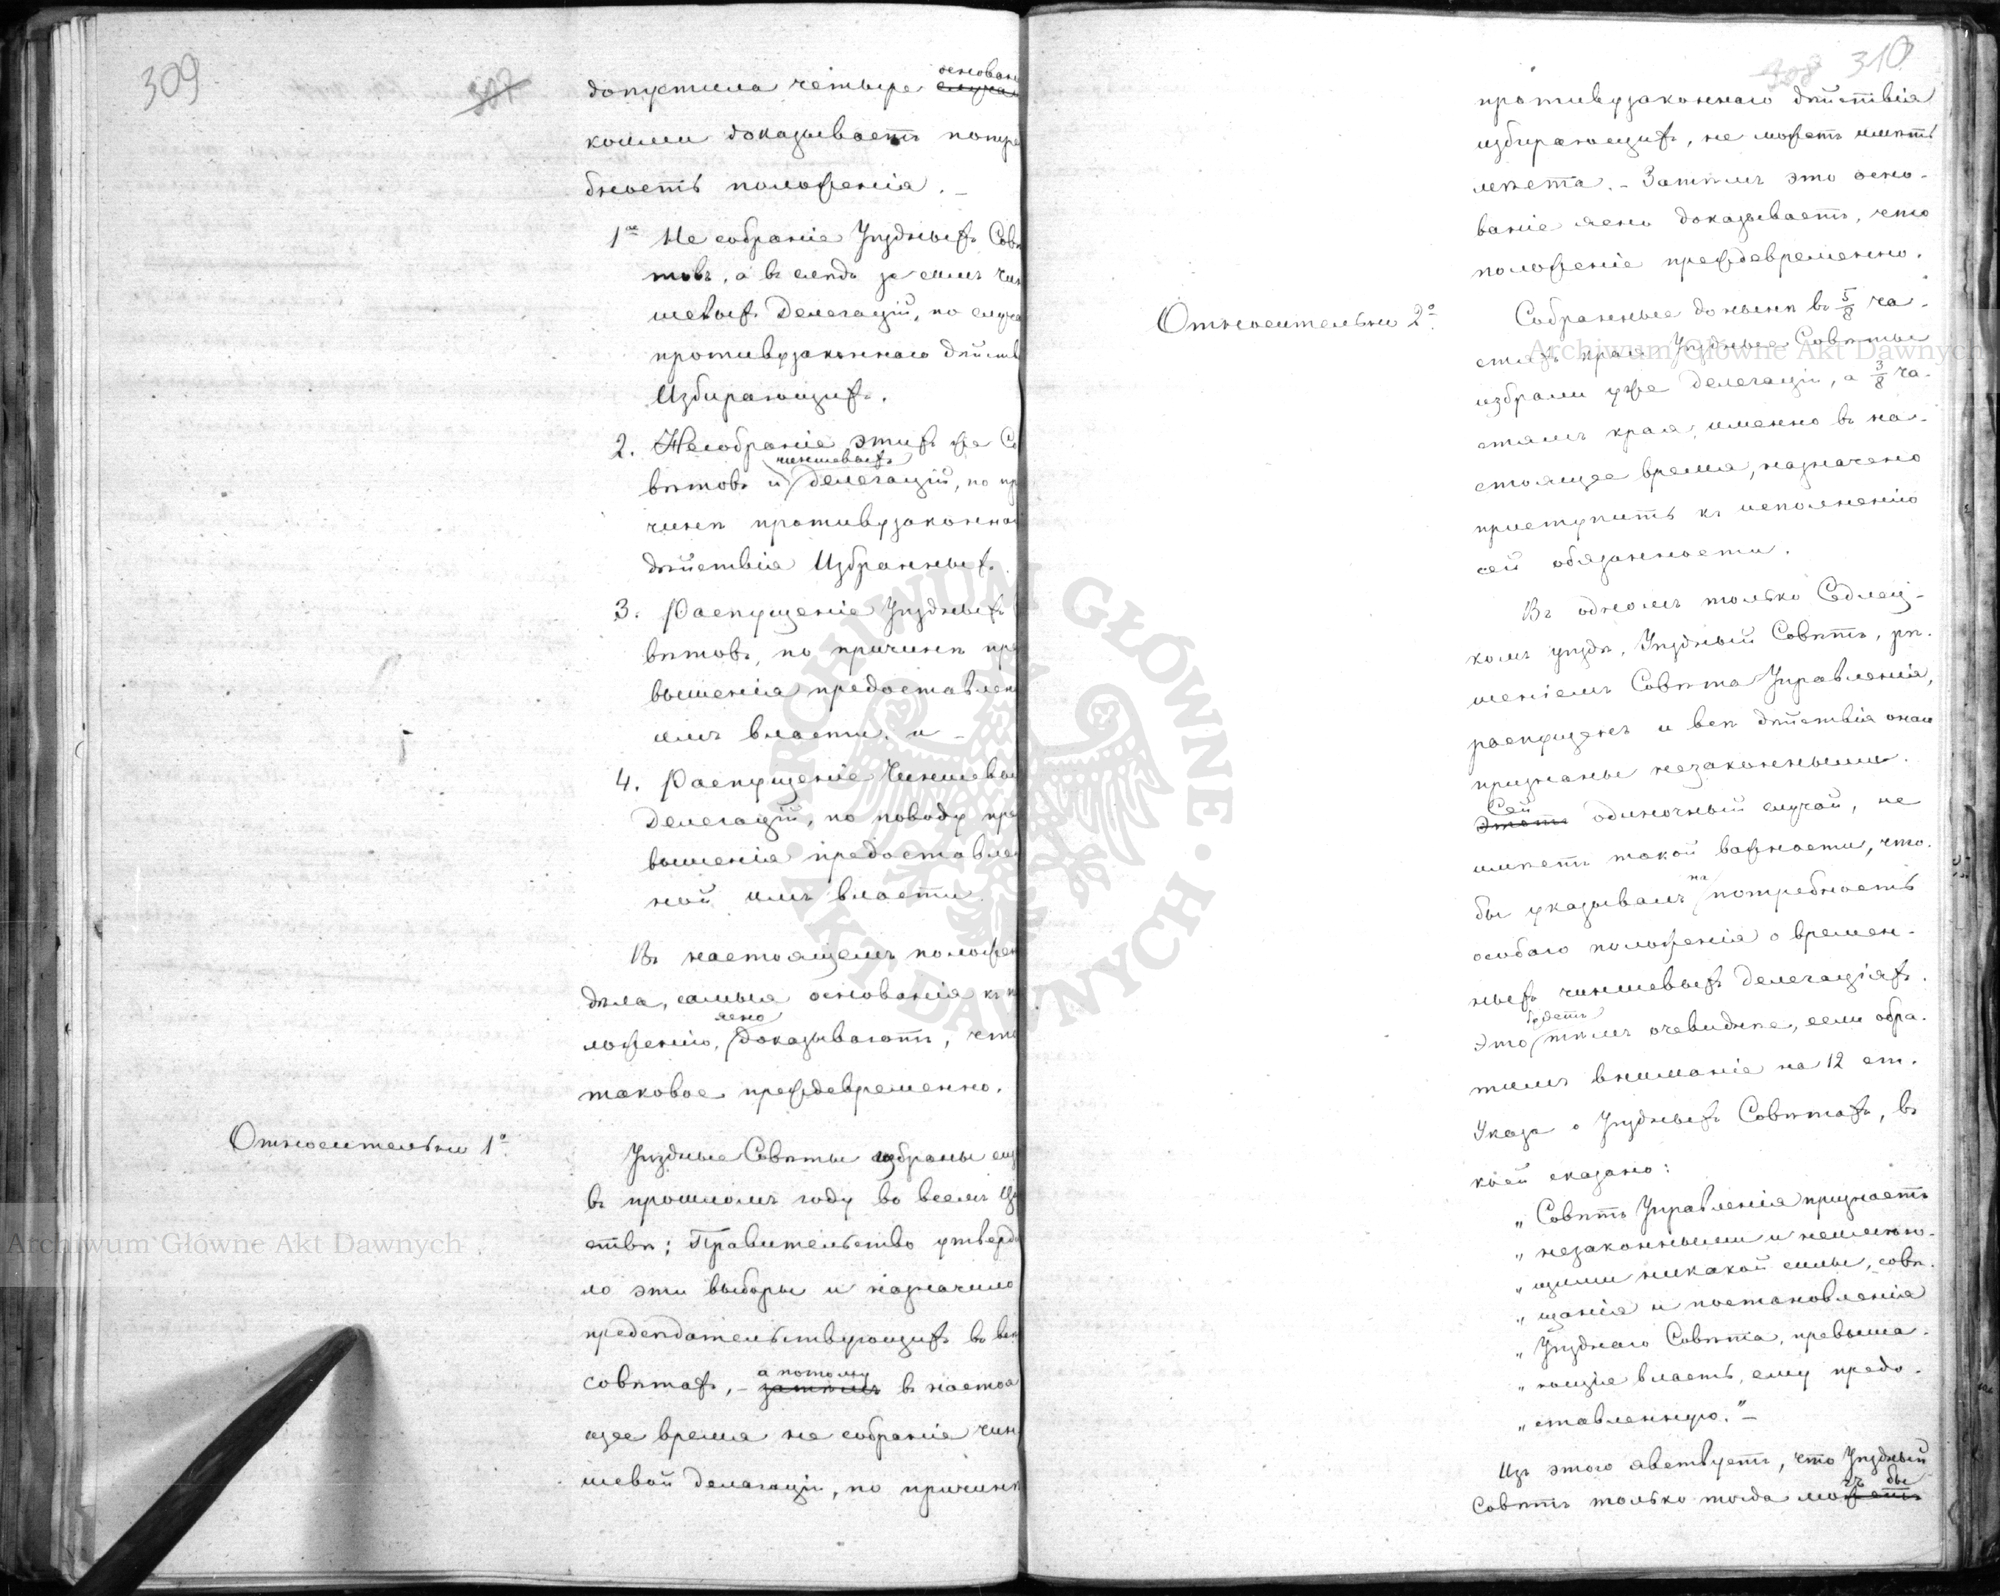 309
307
допустила четыре основан
случая
коими доказываетъ потре
бность положенія. –
1ое Не собраніе Уѣздныхъ Совѣ
товъ, а въ слѣдъ за симъ чин
шевыхъ Делегацій, по случа
противузаконнаго дѣйств
Избирающихъ.
2. Несобраніе этихъ же Со
чиншевыхъ
вѣтовъ и делегацій, по при
чинѣ противузаконна
дѣйствія Избранныхъ.
3. Распущеніе Уѣздныхъ
вѣтовъ, по причинѣ пре
вышенія предоставлен
имъ власти. и –
4. Распущеніе Чиншевы
Делегацій, по поводу пре
вышенія предоставлен
ной имъ власти.
Въ настоящемъ положен
дѣла, самыя основанія къ п
ясно
ложенію, доказываютъ, что
таковое преждевременно.
Относительно 1о.
Уѣздные Совѣты избраны ещ
въ прошломъ году во всемъ Ца
ствѣ; Правительство утверди
ло эти выборы и назначило
предсѣдательствующихъ во всѣ
а потому
совѣтахъ, – затѣмъ въ настоя
щее время не собраніе чин
шевой делегаціи, по причинѣ
308 310
противузаконнаго дѣйствія
избирающихъ, не можетъ имѣть
мѣста. – Затѣмъ это осно-
ваніе ясно доказываетъ, что
положеніе преждевременно.
Относительно 2о.
Собранные до нынѣ въ 5/8 ча-
стяхъ края Уѣздные Совѣты
избрали уже делегаціи, а 3/8 ча-
стямъ края, именно въ на-
стоящее время, назначено
приступить къ исполненію
сей обязанности.
Въ одномъ только Седлец-
комъ уѣздѣ, Уѣздный Совѣтъ, рѣ-
шеніемъ Совѣта Управленія,
распущенъ и всѣ дѣйствія онаго
признаны незаконными.
Сей
Этотъ одиночный случай, не
имѣетъ такой важности, что-
на
бы указывалъ потребность
особаго положенія о времен-
ныхъ чиншевыхъ делегаціяхъ.
будетъ
Это тѣмъ очевиднѣе, если обра-
тимъ вниманіе на 12 ст.
Указа о Уѣздныхъ Совѣтахъ, въ
коей сказано:
„ Совѣтъ Управленія признаетъ
„ незаконными и неимѣю-
„ щими никакой силы, совѣ-
„ щанія и постановленія
„ Уѣзднаго Совѣта, превыша-
„ ющія власть, ему предо-
„ ставленную." –
Изъ этого явствуетъ, что Уѣздный
гъ бы
Совѣтъ только тогда можетъ
ARCHIWUM GŁÓWNE AKT DAWNYCH
Archiwum Główne Akt Dawnych
Archiwum Główne Akt Dawnych